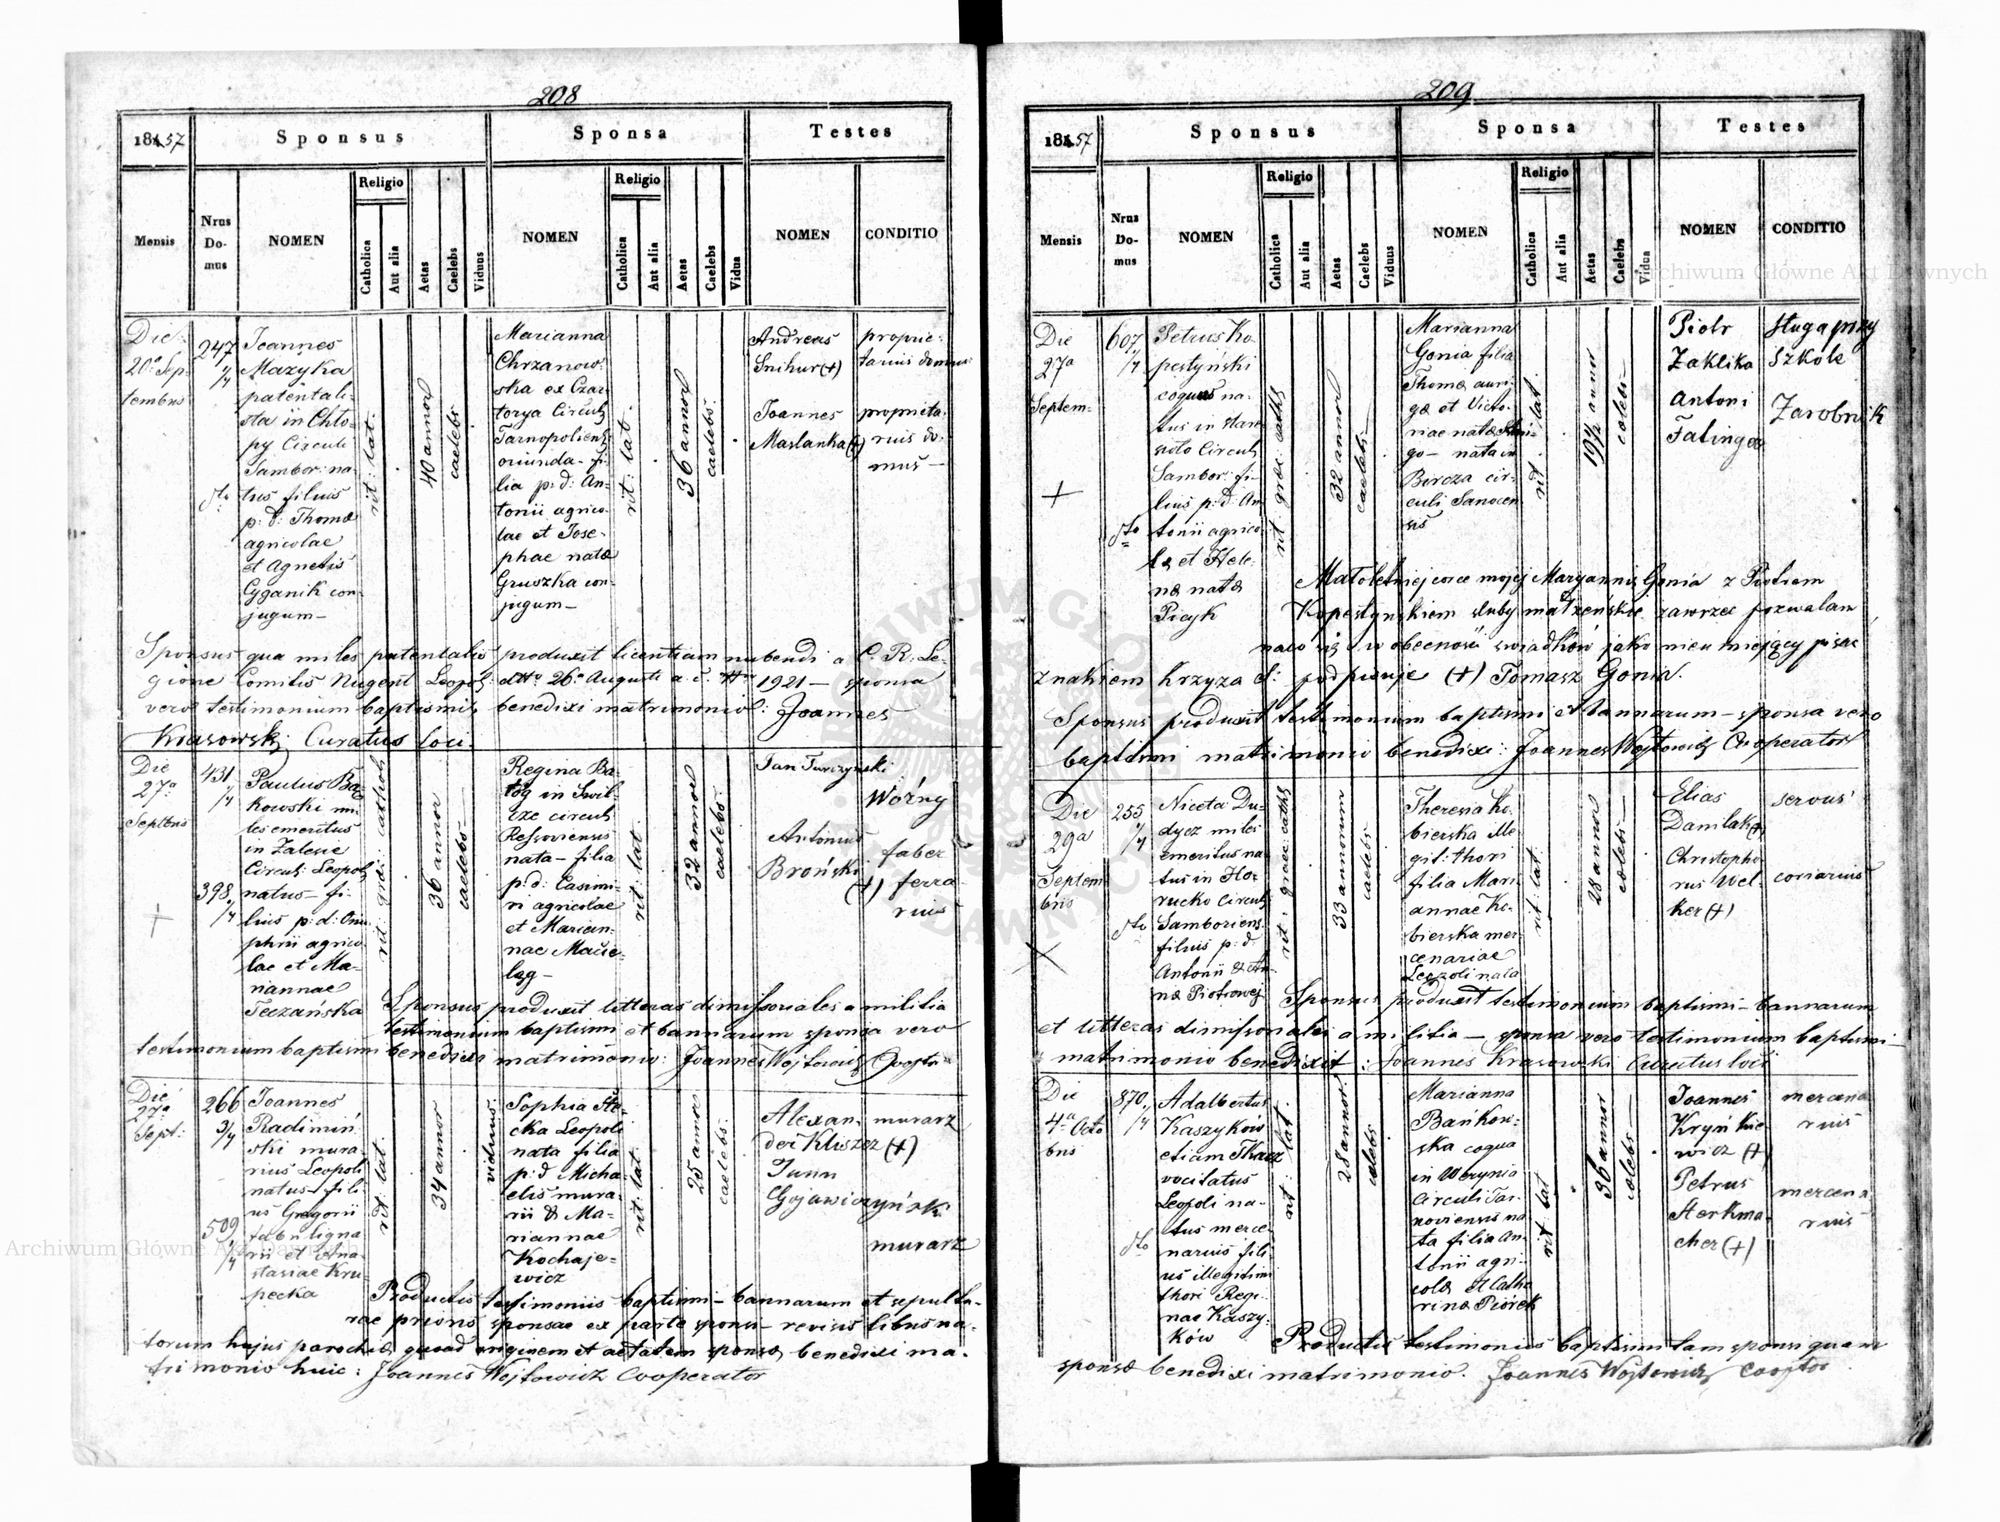 208
1857
Sponsus
Sponsa
Testes
Mensis
Nrus Domus
NOMEN
Religio
Catholica
Aut alia
Aetas
Caelebs
Viduus
NOMEN
Religio
Catholica
Aut alia
Aetas
Caelebs
Vidua
NOMEN
CONDITIO
Die
20a Sep-
tembris
247
4/4
dto
Joannes
Mazyka
patentali-
sta in Chło-
py Circuli
Sambor: na-
tus filius
p: d: Thomae
agricolae
et Agnetis
Cyganik con-
jugum—
rit: lat:
40 annor
caelebs
Marianna
Chrzanow-
ska ex Czar-
torya Circuli
Tarnopoliens
oriunda - fi-
lia p: d: An-
tonii agrico-
lae et Jose-
phae natae
Gruszka con-
jugum—
rit: lat:
36 annor
caelebs
Andreas
Snihur (+)
Joannes
Maslanka (+)
proprie-
tarius domus
proprieta-
rius do-
mus—
Sponsus qua miles patentalis produxit licentiam nubendi a C. R. Le-
gione Comitis Nugent Leopoli ddto 26a Augusti a. c. Nro 1921 — sponsa
vero testimonium baptismi, benedixi matrimonio: Joannes
Krasowski Curatus loci.
Die
27a
Septbris
431
1/4
398
1/4
Paulus Bą-
kowski mi-
les emeritus
in Zalesie
Circuli Leopol
natus — fi-
lius p: d: Onu-
phrii agrico-
lae et Ma-
riannae
Teczańska
rit: graec: cathol:
36 annor
caelebs—
Regina Ba-
tog in Swil-
cze circuli
Ressoviensis
nata — filia
p: d: Casimi-
ri agricolae
et Marian-
nae Macie-
ląg—
rit: lat:
32 annor
caelebs
Jan Turczynski
Woźny
Antonius
Broński
(+)
faber
ferra-
rius
Sponsus produxit litteras dimissoriales a militia
testimonium baptismi et bannorum sponsa vero
testimonium baptismi benedixi matrimonio: Joannes Wojtowicz Cooptor
Die
27a
Sept:
266
3/4
509
1/4
Joannes
Radimiń-
ski mura-
rius Leopoli
natus — fili-
us Gregorii
fabri ligna-
rii et Ana-
stasiae Kru-
pecka
rit: lat:
34 annor
viduus
Sophia
Leopoli
nata filia
p: d: Micha-
elis mura-
rii & Ma-
riannae
Kochaje-
wicz
rit: lat:
25 annor
caelebs:
Alexan-
der Kluszcz (+)
Junn
Gojawiczyński
murarz
murarz
Productis testimoniis baptismi — bannorum et sepultu-
rae prioris sponsae ex parte sponsi — revisis libris na-
torum hujus parochiae, quoad originem et aetatem sponsae, benedixi ma-
trimonio huic: Joannes Wojtowicz Cooperator
209
1857
Sponsus
Sponsa
Testes
Mensis
Nrus Domus
NOMEN
Religio
Catholica
Aut alia
Aetas
Caelebs
Viduus
NOMEN
Religio
Catholica
Aut alia
Aetas
Caelebs
Vidua
NOMEN
CONDITIO
Die
27a
Septem-
607
1/4
dto
Petrus Ko-
pestyński
coquus na-
tus in
Circuli
Sambor: fi-
lius p: d: An-
tonii agrico-
lae et Hele-
nae natae
Picyk
rit: graec: cathl
32 annor
caelebs—
Marianna
Gonia filia
Thomae auri-
gae et Victo-
riae natae
nata in
Bircza cir-
culi Sanocen-
sis
rit: lat:
19½ annor
caelebs—
Piotr
Zaklika
Antoni
Falinger
sługa przy
Szkole
Zarobnik
Małoletniej corce mojej Maryannie Gonia z Piotrem
Kopestynskiem sluby małżeńskie zawrzec pozwalam
naco się w obecności swiadków jako nieumiejący pisać
znakiem krzyza S: podpisuje (+) Tomasz Gonia.
Sponsus produxit testimonium baptismi et bannorum — sponsa vero
baptismi matrimonio benedixi: Joannes Wojtowicz Cooperator
Die
29a
Septem-
bris
255
1/4
dto
Niceta Du-
dycz miles
emeritus na-
tus in Ho-
rucko Circuli
Samboriens
filius p: d:
Antonii & An-
nae Piotrowej
rit: graec: cathl
33 annorum
caelebs
Theresia Ko-
bierska ille-
git: thori
filia Mari-
annae Ko-
bierska mer-
cenariae
Leopoli nata
rit: lat:
28 annor
caelebs—
Elias
Danilak (+)
Christopho-
rus Wel-
ker (+)
servus
coriarius
Sponsus produxit testimonium baptismi — bannorum
et litteras dimissoriales a militia — sponsa vero testimonium baptismi
matrimonio benedixit: Joannes Krasowski Curatus loci
Die
4a Octo-
bris
870
1/4
dto
Adalbertus
Kaszykow
etiam Tkacz
vocitatus
Leopoli na-
tus merce-
narius fili-
us illegitimi
thori Regi-
nae Kaszy-
ków
rit: lat:
28 annor:
caelebs
Marianna
Bańkow-
ska coqua
in Werynia
Circuli Tar-
noviensis na-
ta filia An-
tonii agri-
colae et Catha-
rinae Piórek
rit: lat
36 annor
caelebs—
Joannes
Kryńkie-
wicz (+)
Petrus
Sterkma-
cher (+)
mercena-
rius
mercena-
rius
Productis testimoniis baptismi tam sponsi quam
sponsae benedixi matrimonio. Joannes Wojtowicz Cooptor
Archiwum Główne Akt Dawnych
Archiwum Główne Akt Dawnych
ARCHIWUM GŁÓWNE AKT DAWNYCH